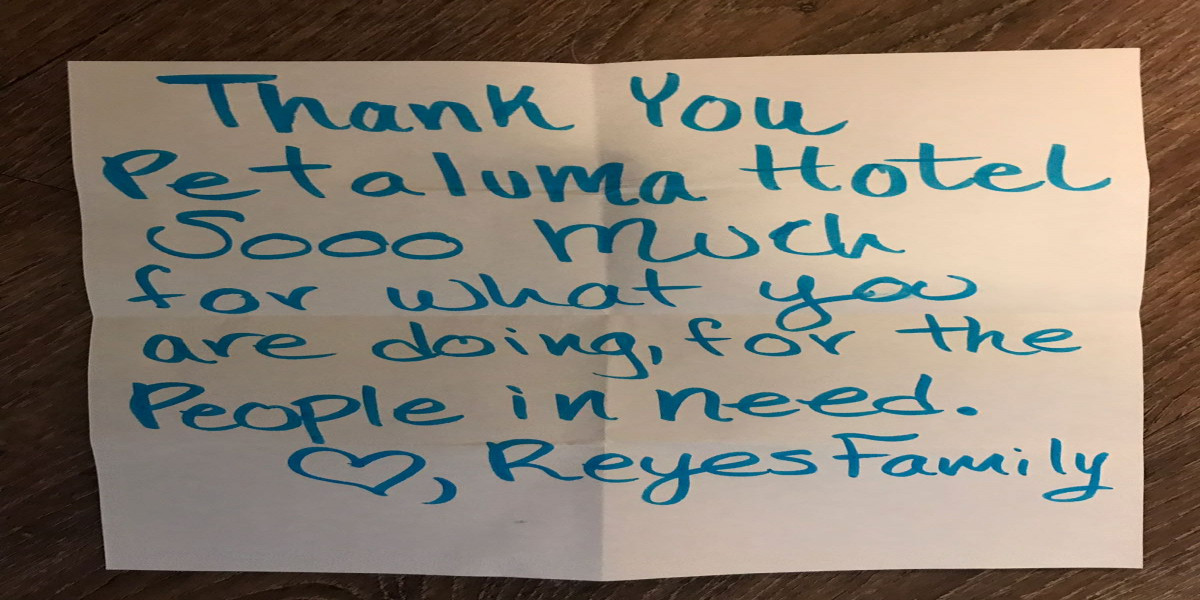 Thank You
Petaluma Hotel
Sooo much
for what you
are doing, for the
People in need.
♡, Reyes Family